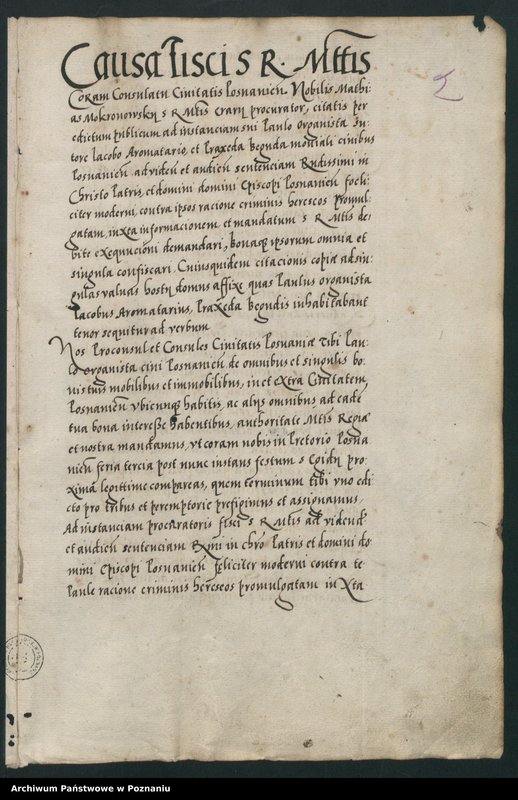 Causa Fisci S R. Mttis
Coram Consulatu Civitatis Posnanien Nobilis Mathi-
as Mokronowsky S R Mtis Erarij procurator, citatis per
edictum publicum ad instanciam sui Paulo Organista Su-
tore Iacobo Aromatario, et Praxeda Begonda moniali civibus
Posnanien ad viden et audien sentenciam Rndissimi in
Christo Patris, et domini domini Episcopi Posnanien foeli-
citer moderni, contra ipsos racione criminis hereseos promul-
gatam, iuxta informacionem et mandatum S R Mtis de-
bite exequucioni demandari, bonaq ipsorum omnia et
singula confiscari. Cuiusquidem citacionis copiae ad sin-
gulas valvas hostij domus affixe quas Paulus organista
Iacobus Aromatarius, Praxeda Begudis inhabitabant
tenor sequitur ad verbum
Nos Proconsul et Consules Civitatis Posnaniae Tibi Pau-
lo organista civi Posnanien de omnibus et singulis bo-
nis tuis mobilibus et immobilibus, in et extra Civitatem
Posnanien ubicunq habitis, ac alijs omnibus, ad eade
tua bona interesse habentibus, authoritate Mtis Regiae
et nostra mandamus, ut coram nobis in Pretorio Posna
nien feria tercia post nunc instans festum S Egidij pro-
xima legittime compareas, quem terminum tibi uno edi
cto pro tribus et peremptorie prefigimus et assignamus,
Ad instanciam procuratoris fisci S R Mtis ad videnđ
et audien sentenciam Rmi in chro Patris et domini do
mini Episcopi Posnanien feliciter moderni contra te
Paule racione criminis hereseos promulgatam iuxta
Archiwum Państwowe w Poznaniu